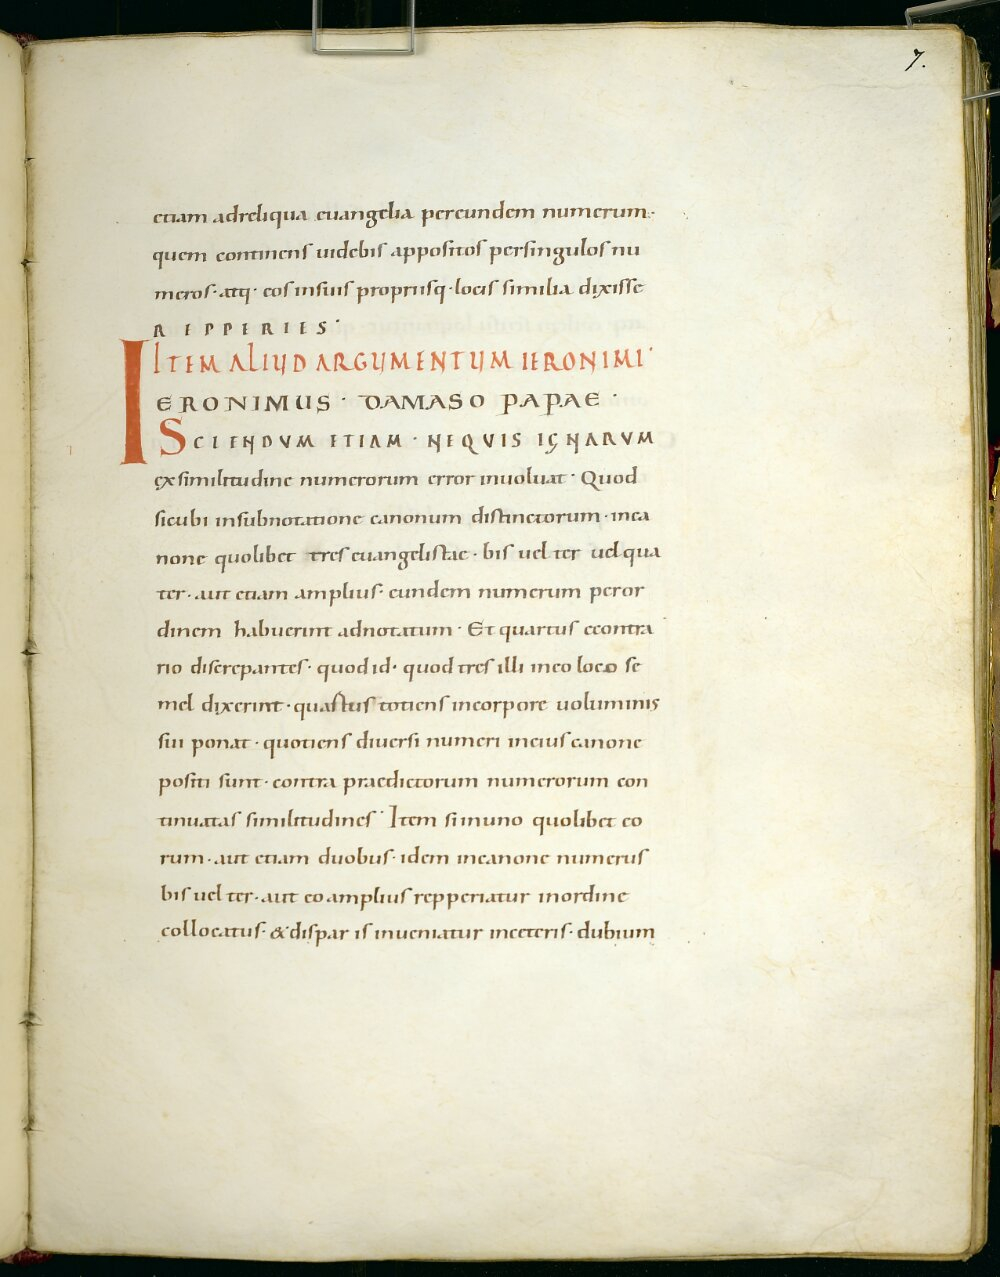 7.
etiam adreliqua euangelia pereundem numerum·
quem continens uidebis appositos persingulos nu
meros· atq· eos insuis propriisq· locis similia dixisse
REPPERIES·
ITEM ALIUD ARGUMENTUM IERONIMI·
IERONIMUS · DAMASO PAPAE ·
SCIENDVM ETIAM · NEQVIS IGNARVM
ex similitudine numerorum error inuoluat· Quod
sicubi insubnotatione canonum distinctorum· inca
none quolibet tres euangelistae· bis uel ter uel qua
ter· aut etiam amplius· eundem numerum peror
dinem habuerint adnotatum· Et quartus econtra
rio discrepantes· quod id· quod tres illi ineo loco se
mel dixerint· quartus totiens incorpore uoluminis
sui ponat· quotiens diuersi numeri ineius canone
positi sunt· contra praedictorum numerorum con
tinuatas similitudines· Item si inuno quolibet eo
rum· aut etiam duobus· idem incanone numerus
bis uel ter· aut eo amplius repperiatur inordine
collocatus· & dispar is inueniatur inceteris· dubium